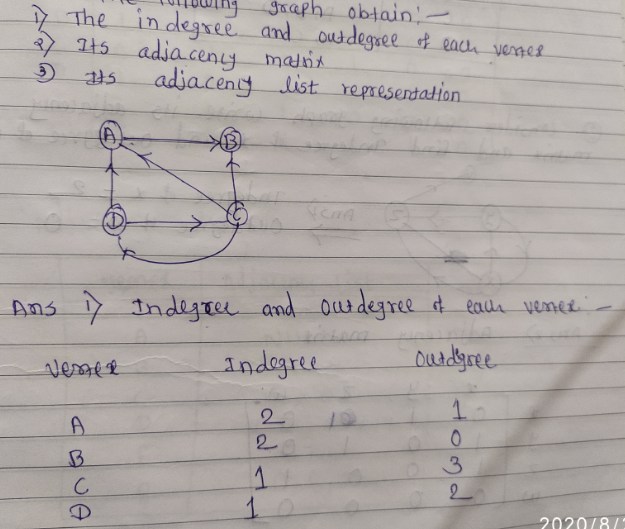 following graph obtain:-
1) The indegree and outdegree of each vertex
2) Its adjacency matrix
3) Its adjacency list representation
A B
D C
Ans 1) Indegree and outdegree of each vertex :-
Vertex Indegree Outdegree
A 2 1
B 2 0
C 1 3
D 1 2
2020/8/